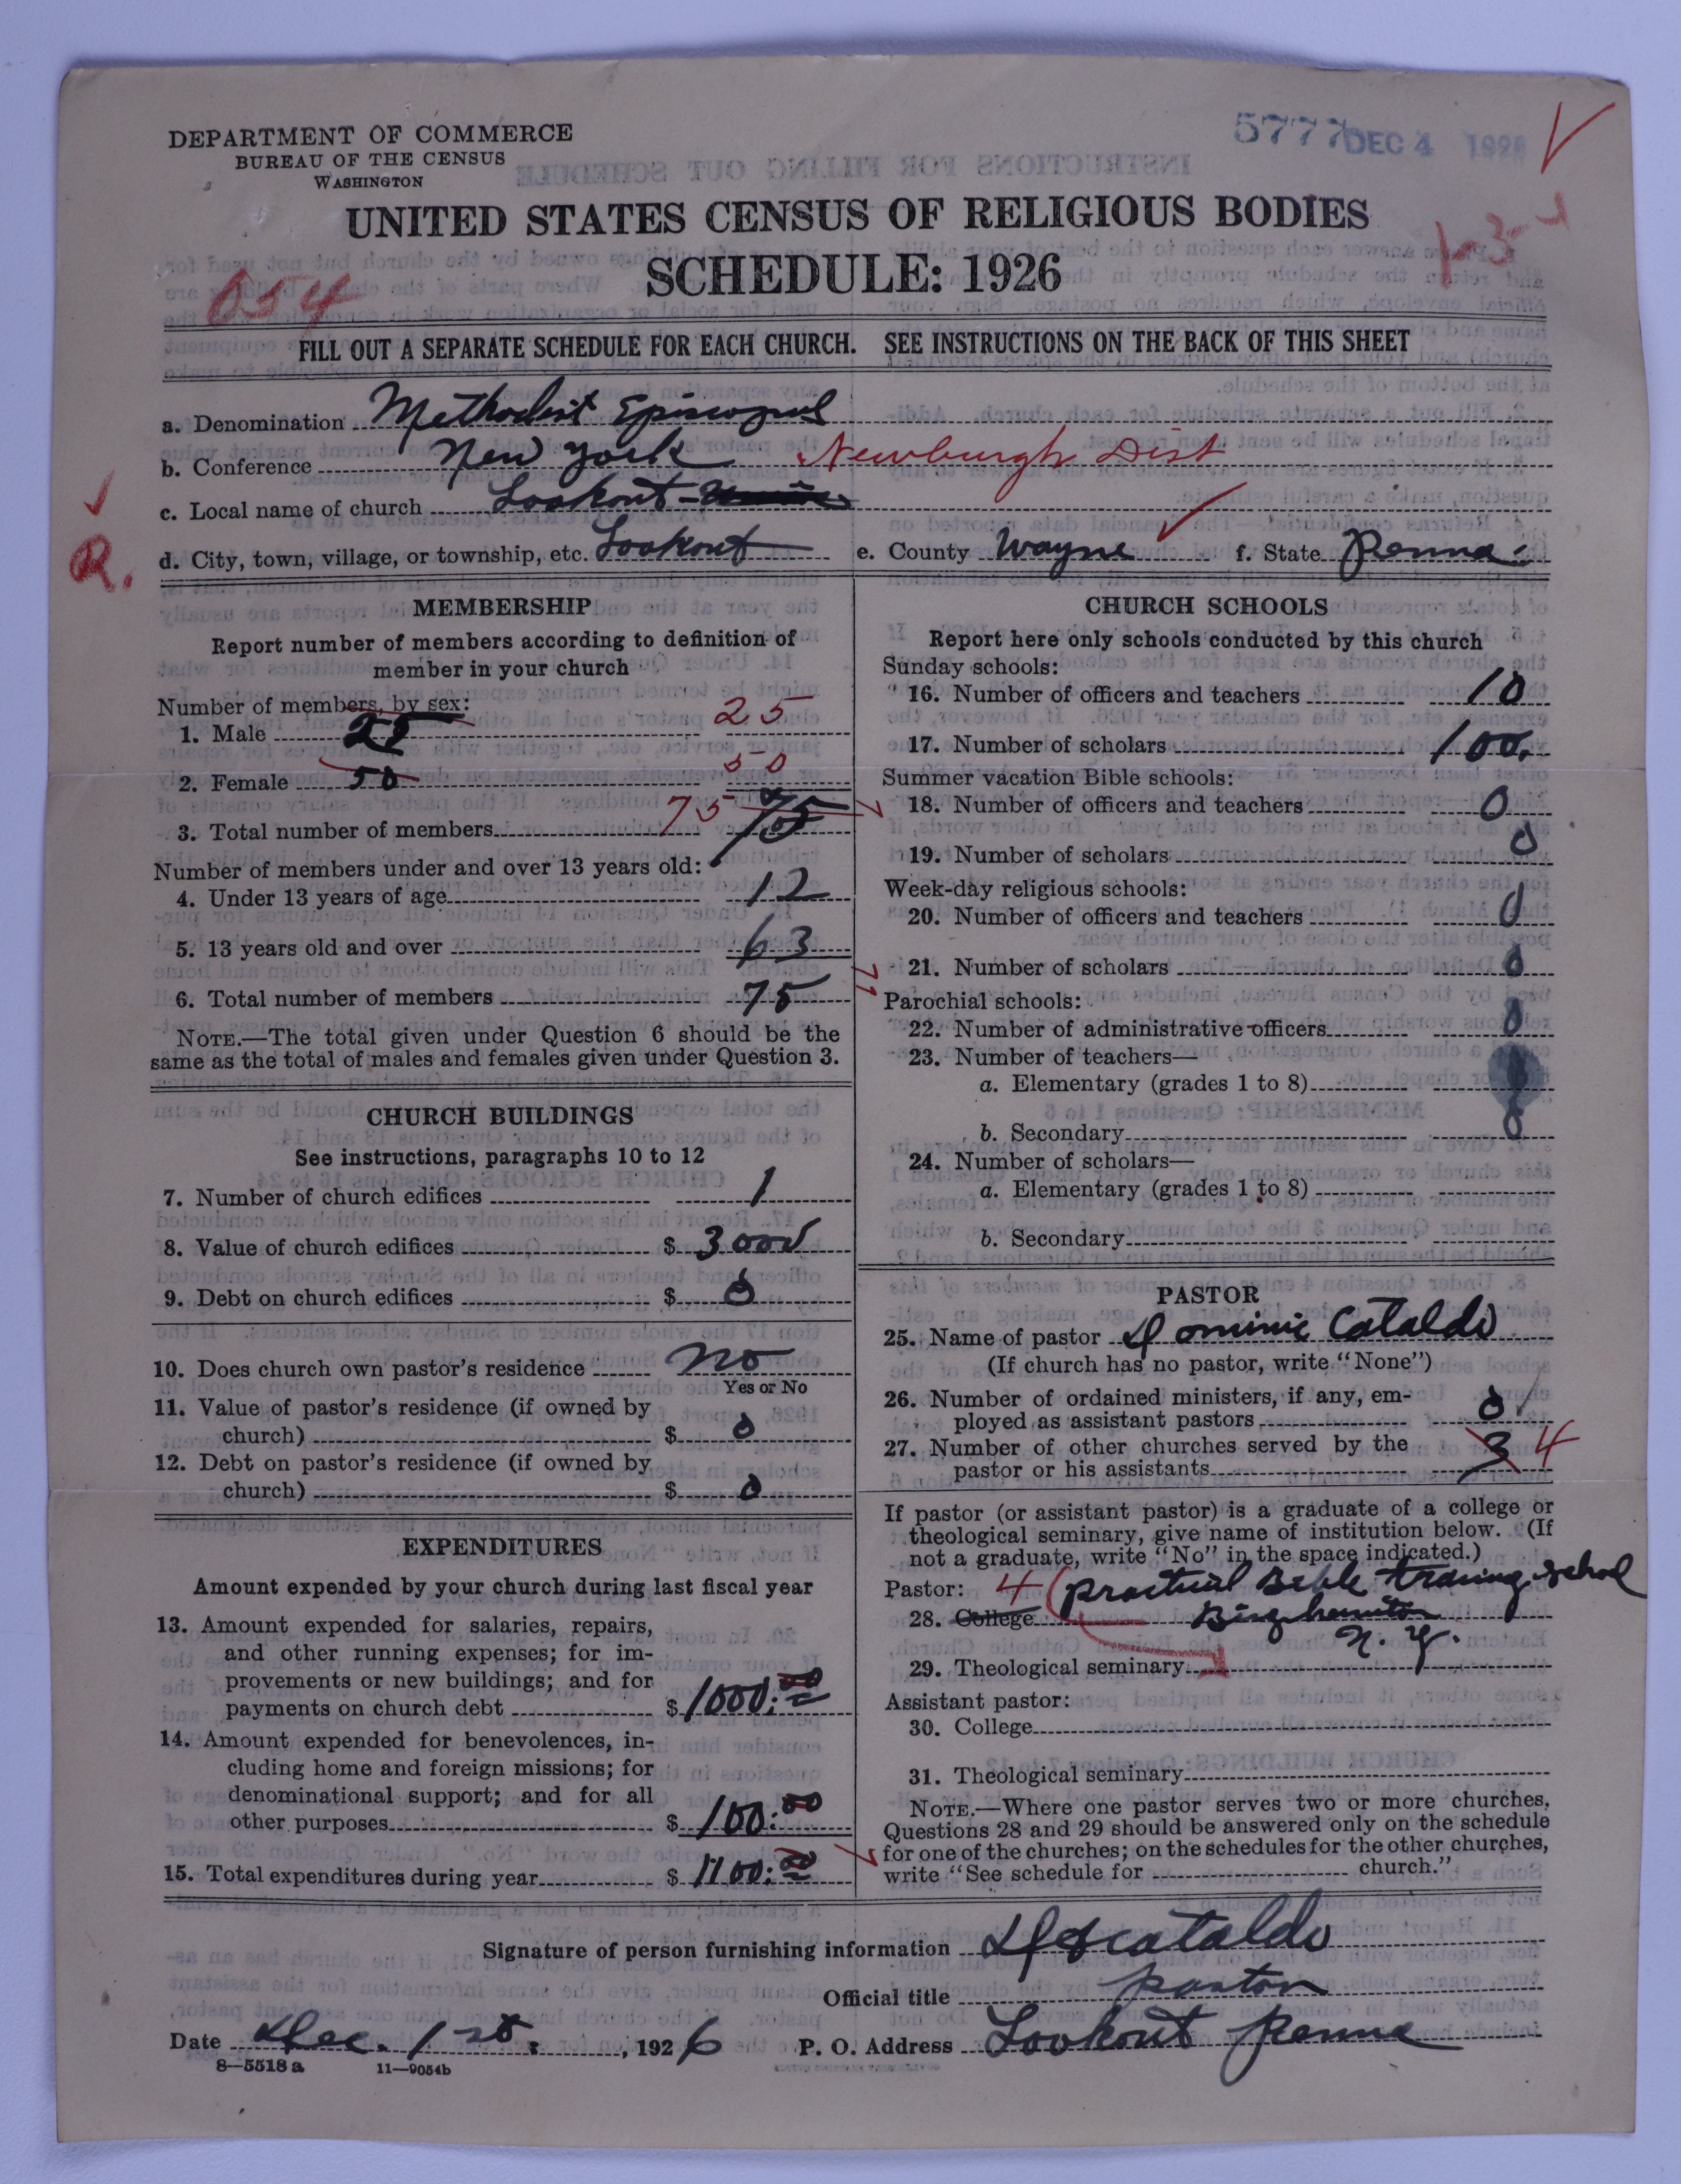 DEPARTMENT OF COMMERCE
BUREAU OF THE CENSUS
WASHINGTON
5777 DEC 4 1926
UNITED STATES CENSUS OF RELIGIOUS BODIES
SCHEDULE: 1926
1-3-
054
FILL OUT A SEPARATE SCHEDULE FOR EACH CHURCH. SEE INSTRUCTIONS ON THE BACK OF THIS SHEET
a. Denomination Methodist Episcopal
b. Conference New York Newburgh Dist
c. Local name of church Lookout
R.
d. City, town, village, or township, etc. Lookout e. County Wayne f. State Penna.
MEMBERSHIP
Report number of members according to definition of
member in your church
Number of members, by sex:
1. Male 25 25
2. Female 50 50
3. Total number of members 75 75
Number of members under and over 13 years old:
4. Under 13 years of age 12
5. 13 years old and over 63
6. Total number of members 75
NOTE.—The total given under Question 6 should be the
same as the total of males and females given under Question 3.
CHURCH BUILDINGS
See instructions, paragraphs 10 to 12
7. Number of church edifices 1
8. Value of church edifices $ 3000
9. Debt on church edifices $ 0
10. Does church own pastor's residence no
Yes or No
11. Value of pastor's residence (if owned by
church) $ 0
12. Debt on pastor's residence (if owned by
church) $ 0
EXPENDITURES
Amount expended by your church during last fiscal year
13. Amount expended for salaries, repairs,
and other running expenses; for im-
provements or new buildings; and for
payments on church debt $ 1000.00
14. Amount expended for benevolences, in-
cluding home and foreign missions; for
denominational support; and for all
other purposes $ 100.00
15. Total expenditures during year $ 1100.00
CHURCH SCHOOLS
Report here only schools conducted by this church
Sunday schools:
16. Number of officers and teachers 10
17. Number of scholars 100.
Summer vacation Bible schools:
18. Number of officers and teachers 0
19. Number of scholars 0
Week-day religious schools:
20. Number of officers and teachers 0
21. Number of scholars 0
Parochial schools:
22. Number of administrative officers 0
23. Number of teachers—
a. Elementary (grades 1 to 8)
b. Secondary 0
24. Number of scholars—
a. Elementary (grades 1 to 8)
b. Secondary
PASTOR
25. Name of pastor Dominic Cataldo
(If church has no pastor, write "None")
26. Number of ordained ministers, if any, em-
ployed as assistant pastors 0
27. Number of other churches served by the
pastor or his assistants 3 4
If pastor (or assistant pastor) is a graduate of a college or
theological seminary, give name of institution below. (If
not a graduate, write "No" in the space indicated.)
Pastor: 4 Practical Bible Training School
28. College Binghamton
N. Y.
29. Theological seminary
Assistant pastor:
30. College
31. Theological seminary
NOTE.—Where one pastor serves two or more churches,
Questions 28 and 29 should be answered only on the schedule
for one of the churches; on the schedules for the other churches,
write "See schedule for church."
Signature of person furnishing information Cataldo
Official title pastor
Date Dec. 1st. , 1926 P. O. Address Lookout Penna
8—5518a 11—9054b